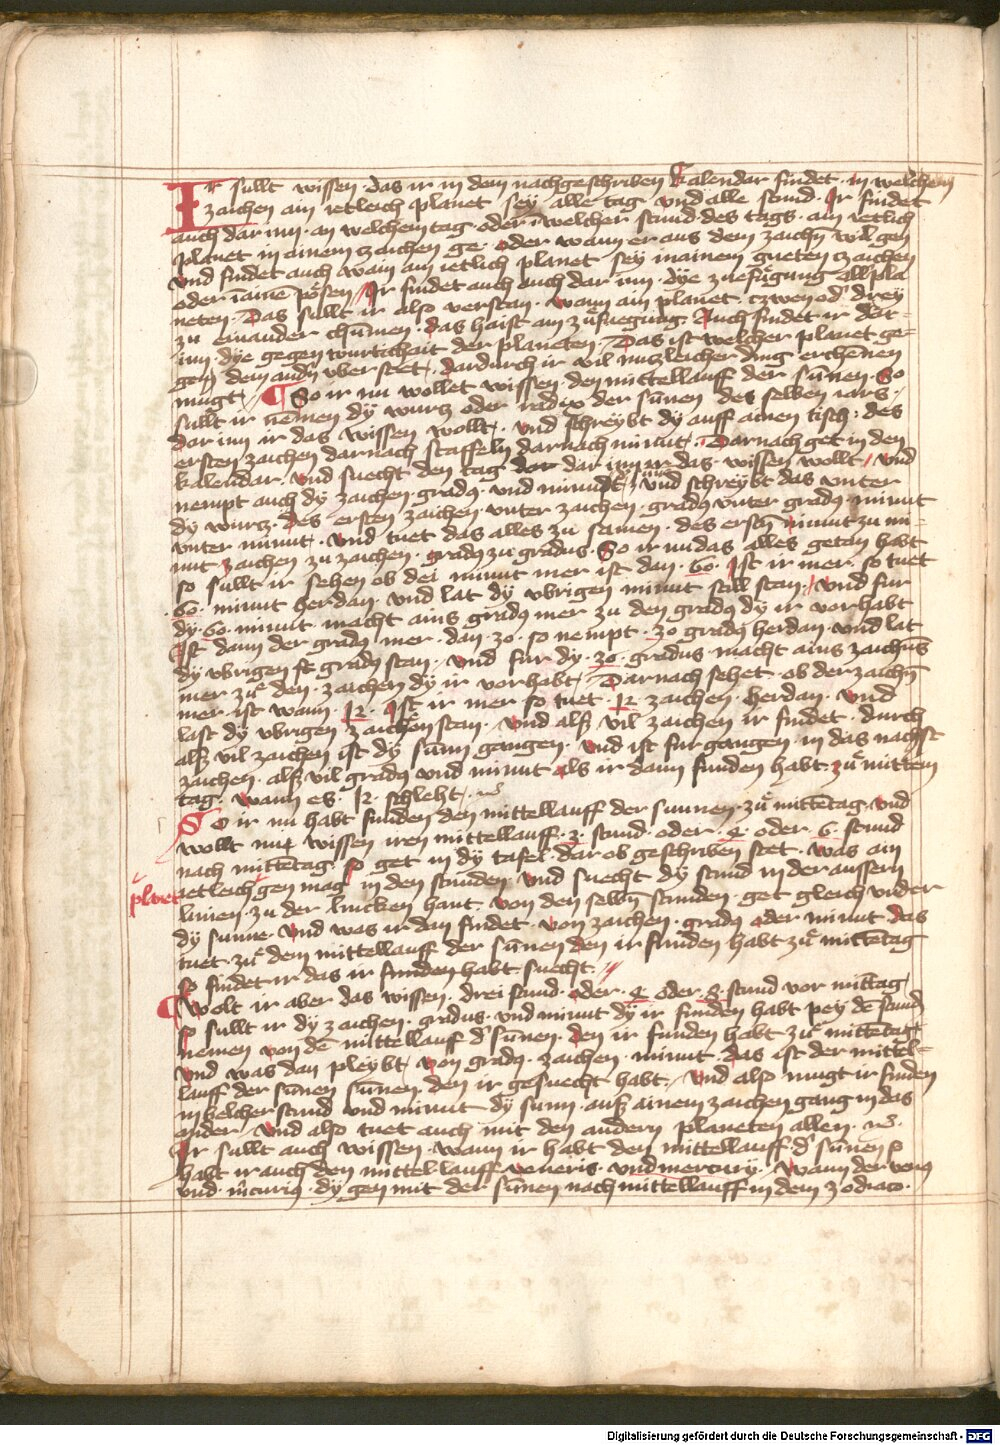 Ir sullt wissen das ir in dem nachgeschriben kalendar findet in welchem
zaichen ain ietleich planet sey alle tag vnd alle stund Ir findet
auch dar inn an welchem tag oder in welcher stund des tags ain ietlich
planet in ainem zaichen ge oder wann er aus dem zaichn wil gen
vnd findet auch wann ain ietlich planet sey in ainem gueten zaichen
oder in aine pösen Ir findet auch auch dar inn dye zuefügung all pla
neten Das sullt ir also verstan wann ain planet czwen od' drey
zu einander chumen das haist ain züfuegung Auch findet ir dar
inn dye gegenwurtichait der planeten Das ist welcher planet ge
gen dem andn vber stet dardurch ir vil nuczleicher ding erchenen
mugt ¶ So ir nu wollet wissen den mittellauff der sunen So
sullt ir nemen dy wurcz oder radix der sunen des selben iars
dar inn ir das wissen wollt vnd schreybt dy auff ainen tisch des
ersten zaichen darnach staffeln darnach minut Darnach get in den
kalendar vnd suecht den tag dar inn ir das wissen wollt vnd
nempt auch dy zaichen gradus vnd minut vnd schreybt das vnter
dy wurcz Des ersten zaichen vnter zaichen gradus vnter gradus minut
vnter minut vnd tuet das alles zu samen des ersten minut zu mi
nut zaichen zu zaichen gradus zu gradus So ir nu das alles getan habt
so sullt ir sehen ob dei minut mer ist dan 60 Ist ir mer so tuet
60 minut herdan vnd lat dy vbrigen minut still stan vnd fur
dy 60 minut macht ains gradus mer zu den gradus dy ir vor habt
Ist dann der gradus mer dan 30 so nempt 30 gradus herdan vnd lat
dy vbrigen gradus stan vnd fur dy 30 gradus macht ains zaichens
mer zu den zaichen dy ir vor habt Darnach sehet ob der zaichn
mer ist wann 12 Ist ir mer so tuet 12 zaichen herdan vnd
last dy vbrigen zaichen stan vnd als vil zaichen ir findet durch
als vil zaichen ist dy sunn gangen vnd ist fur gangen in das nachst
zaichen als vil gradus vnd minut als ir dann funden habt zu mittem
tag wann es 12 schleht
So ir nu habt funden den mittellauff der sunnen zu mittetag vnd
wollt nu wissen iren mittellauff 3 stund oder 4 oder 6 stund
nach mittetag so get in dy tafel dar ob geschriben stet was ain
ietleich gen mag in den stunden vnd suecht dy stund in der aussern
planet
linien zu der lincken hant von den selbn stunden get gleich vnder
dy sunne vnd was ir dan findet von zaichen gradus oder minut das
tuet zu dem mittellauff der sunen den ir funden habt zu mittetag
so findet ir das ir funden habt suecht
¶ Wolt ir aber das wissen drei stund oder 4 oder 8 stund vor mittag
so sullt ir dy zaichen gradus vnd minut dy ir funden habt pey de stund
nemen von de mittellauff d' sunen den ir funden habt zu mittetag
vnd was dan pleybt von gradus zaichen minut das ist der mittel
lauff der sunen sunen den ir gesuecht habt vnd also mugt ir finden
in welcher stund vnd minut dy sunn aus ainem zaichen gang in das
ander vnd also tuet auch mit den andern planeten allen
Ir sullt auch wissen wann ir habt den mittellauff d' sunen so
habt ir auch den mittel lauff veneris vnd mercury Wann der venus
vnd mcurius dy gen mit der sunen nach mittellauff in dem zodiaco
Digitalisierung gefördert durch die Deutsche Forschungsgemeinschaft - DFG